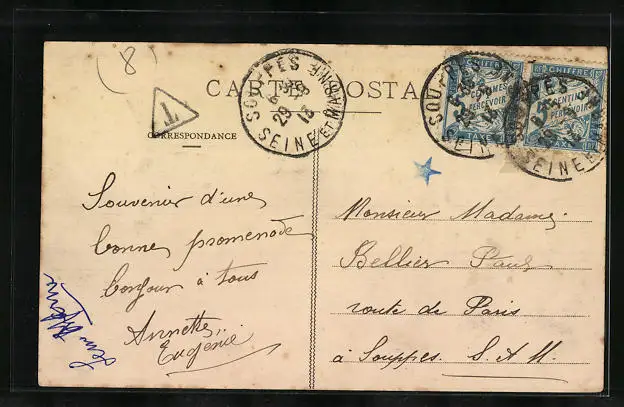 (8)
CARTE POSTALE
T
CORRESPONDANCE
SOUPPES
SEINE ET MARNE
29
13
CHIFFRE
CENTIMES
A PERCEVOIR
TAXE
CHIFFRE
CENTIMES
A PERCEVOIR
TAXE
Souvenir d'une
bonne promenade
bonjour à tous
Annette
Eugénie
Monsieur Madame
Bellier Paul
route de Paris
à Souppes S. & M.